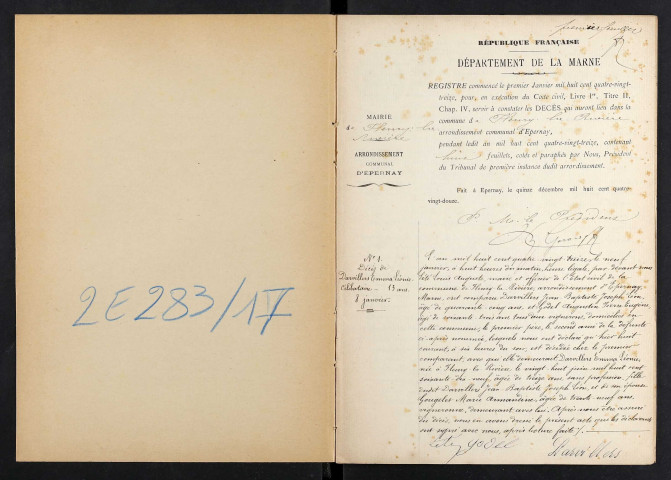 2E 283/17
RÉPUBLIQUE FRANÇAISE
DÉPARTEMENT DE LA MARNE
REGISTRE commencé le premier Janvier mil huit cent quatre-vingt-
treize, pour, en exécution du Code civil, Livre Ier, Titre II,
Chap. IV, servir à constater les DÉCÈS qui auront lieu dans la
commune de Fleury la Rivière
arrondissement communal d'Epernay,
pendant ledit an mil huit cent quatre-vingt-treize, contenant
feuillets, cotés et paraphés par Nous, Président
du Tribunal de première instance dudit arrondissement.
Fait à Epernay, le quinze décembre mil huit cent quatre-
vingt-douze.
MAIRIE
de Fleury la
Rivière
ARRONDISSEMENT
COMMUNAL
D'ÉPERNAY
P. Mr le Président
No 1.
Décès de
Darvillers Emma Léonie
Célibataire 13 ans
8 janvier.
L'an mil huit cent quatre vingt-treize, le neuf
janvier, à huit heures du matin, heure légale, par devant nous
Louis Auguste, maire et officier de l'état civil de la
commune de Fleury la Rivière, arrondissement d'Epernay,
Marne, ont comparu Darvillers Jean Baptiste Joseph Léon,
âgé de quarante cinq ans et Augustin Pierre Eugène,
âgé de soixante trois ans tous deux vignerons, domiciliés en
cette commune, le premier père, le second ami de la défunte
ci après nommée, lesquels nous ont déclaré qu'hier huit
courant, à six heures du soir, est décédée chez le premier
comparant, avec qui elle demeurait Darvillers Emma Léonie,
née à Fleury la Rivière, le vingt huit juin mil huit cent
soixante dix neuf, âgée de treize ans, sans profession, fille
dudit Darvillers Jean Baptiste Joseph Léon, et de son épouse
Marie Amantine, âgée de trente neuf ans,
vigneronne, demeurant avec lui. Après nous être assuré
du décès, nous en avons dressé le présent acte que les déclarants
ont signé avec nous, après lecture faite.
Darvillers